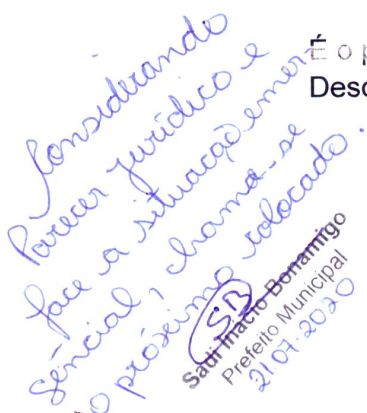 Considerando
Parecer Jurídico e
face a situação emer-
gêncial, chama-se
o próximo colocado.
É o p
Desc
SB
Sadi Inacio Bonamigo
Prefeito Municipal
21.07.2020